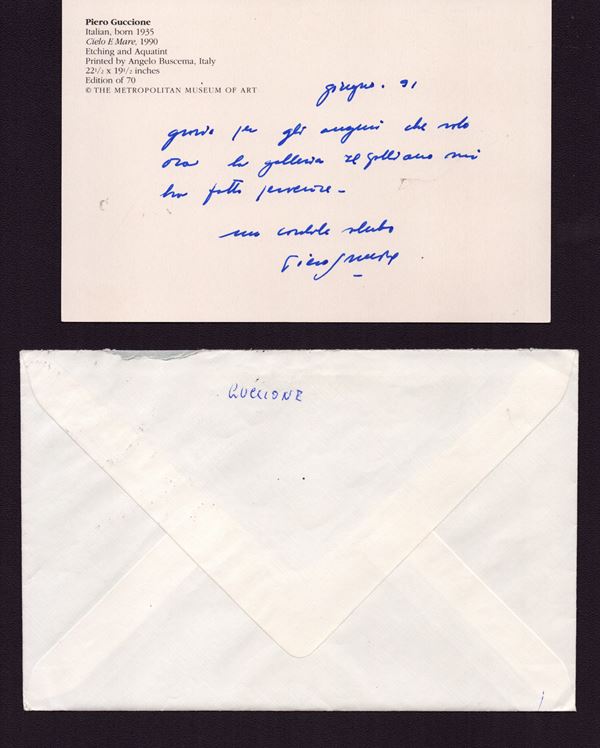 Piero Guccione
Italian, born 1935
Cielo E Mare, 1990
Etching and Aquatint
Printed by Angelo Buscema, Italy
22½ x 19½ inches
Edition of 70
© THE METROPOLITAN MUSEUM OF ART
giugno. 91
grazie per gli auguri che solo
ora la galleria mi
ha fatto pervenire -
un cordiale saluto
Piero Guccione
GUCCIONE